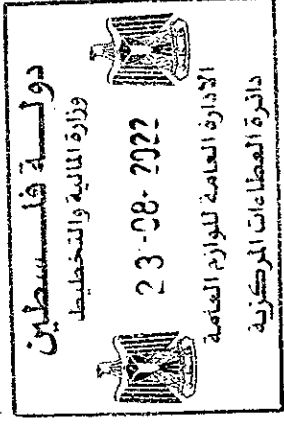 دولـــة فلـــسطين
وزارة المالية والتخطيط
23-08-2022
الادارة العامة للوازم العامة
دائرة العطاءات المركزية